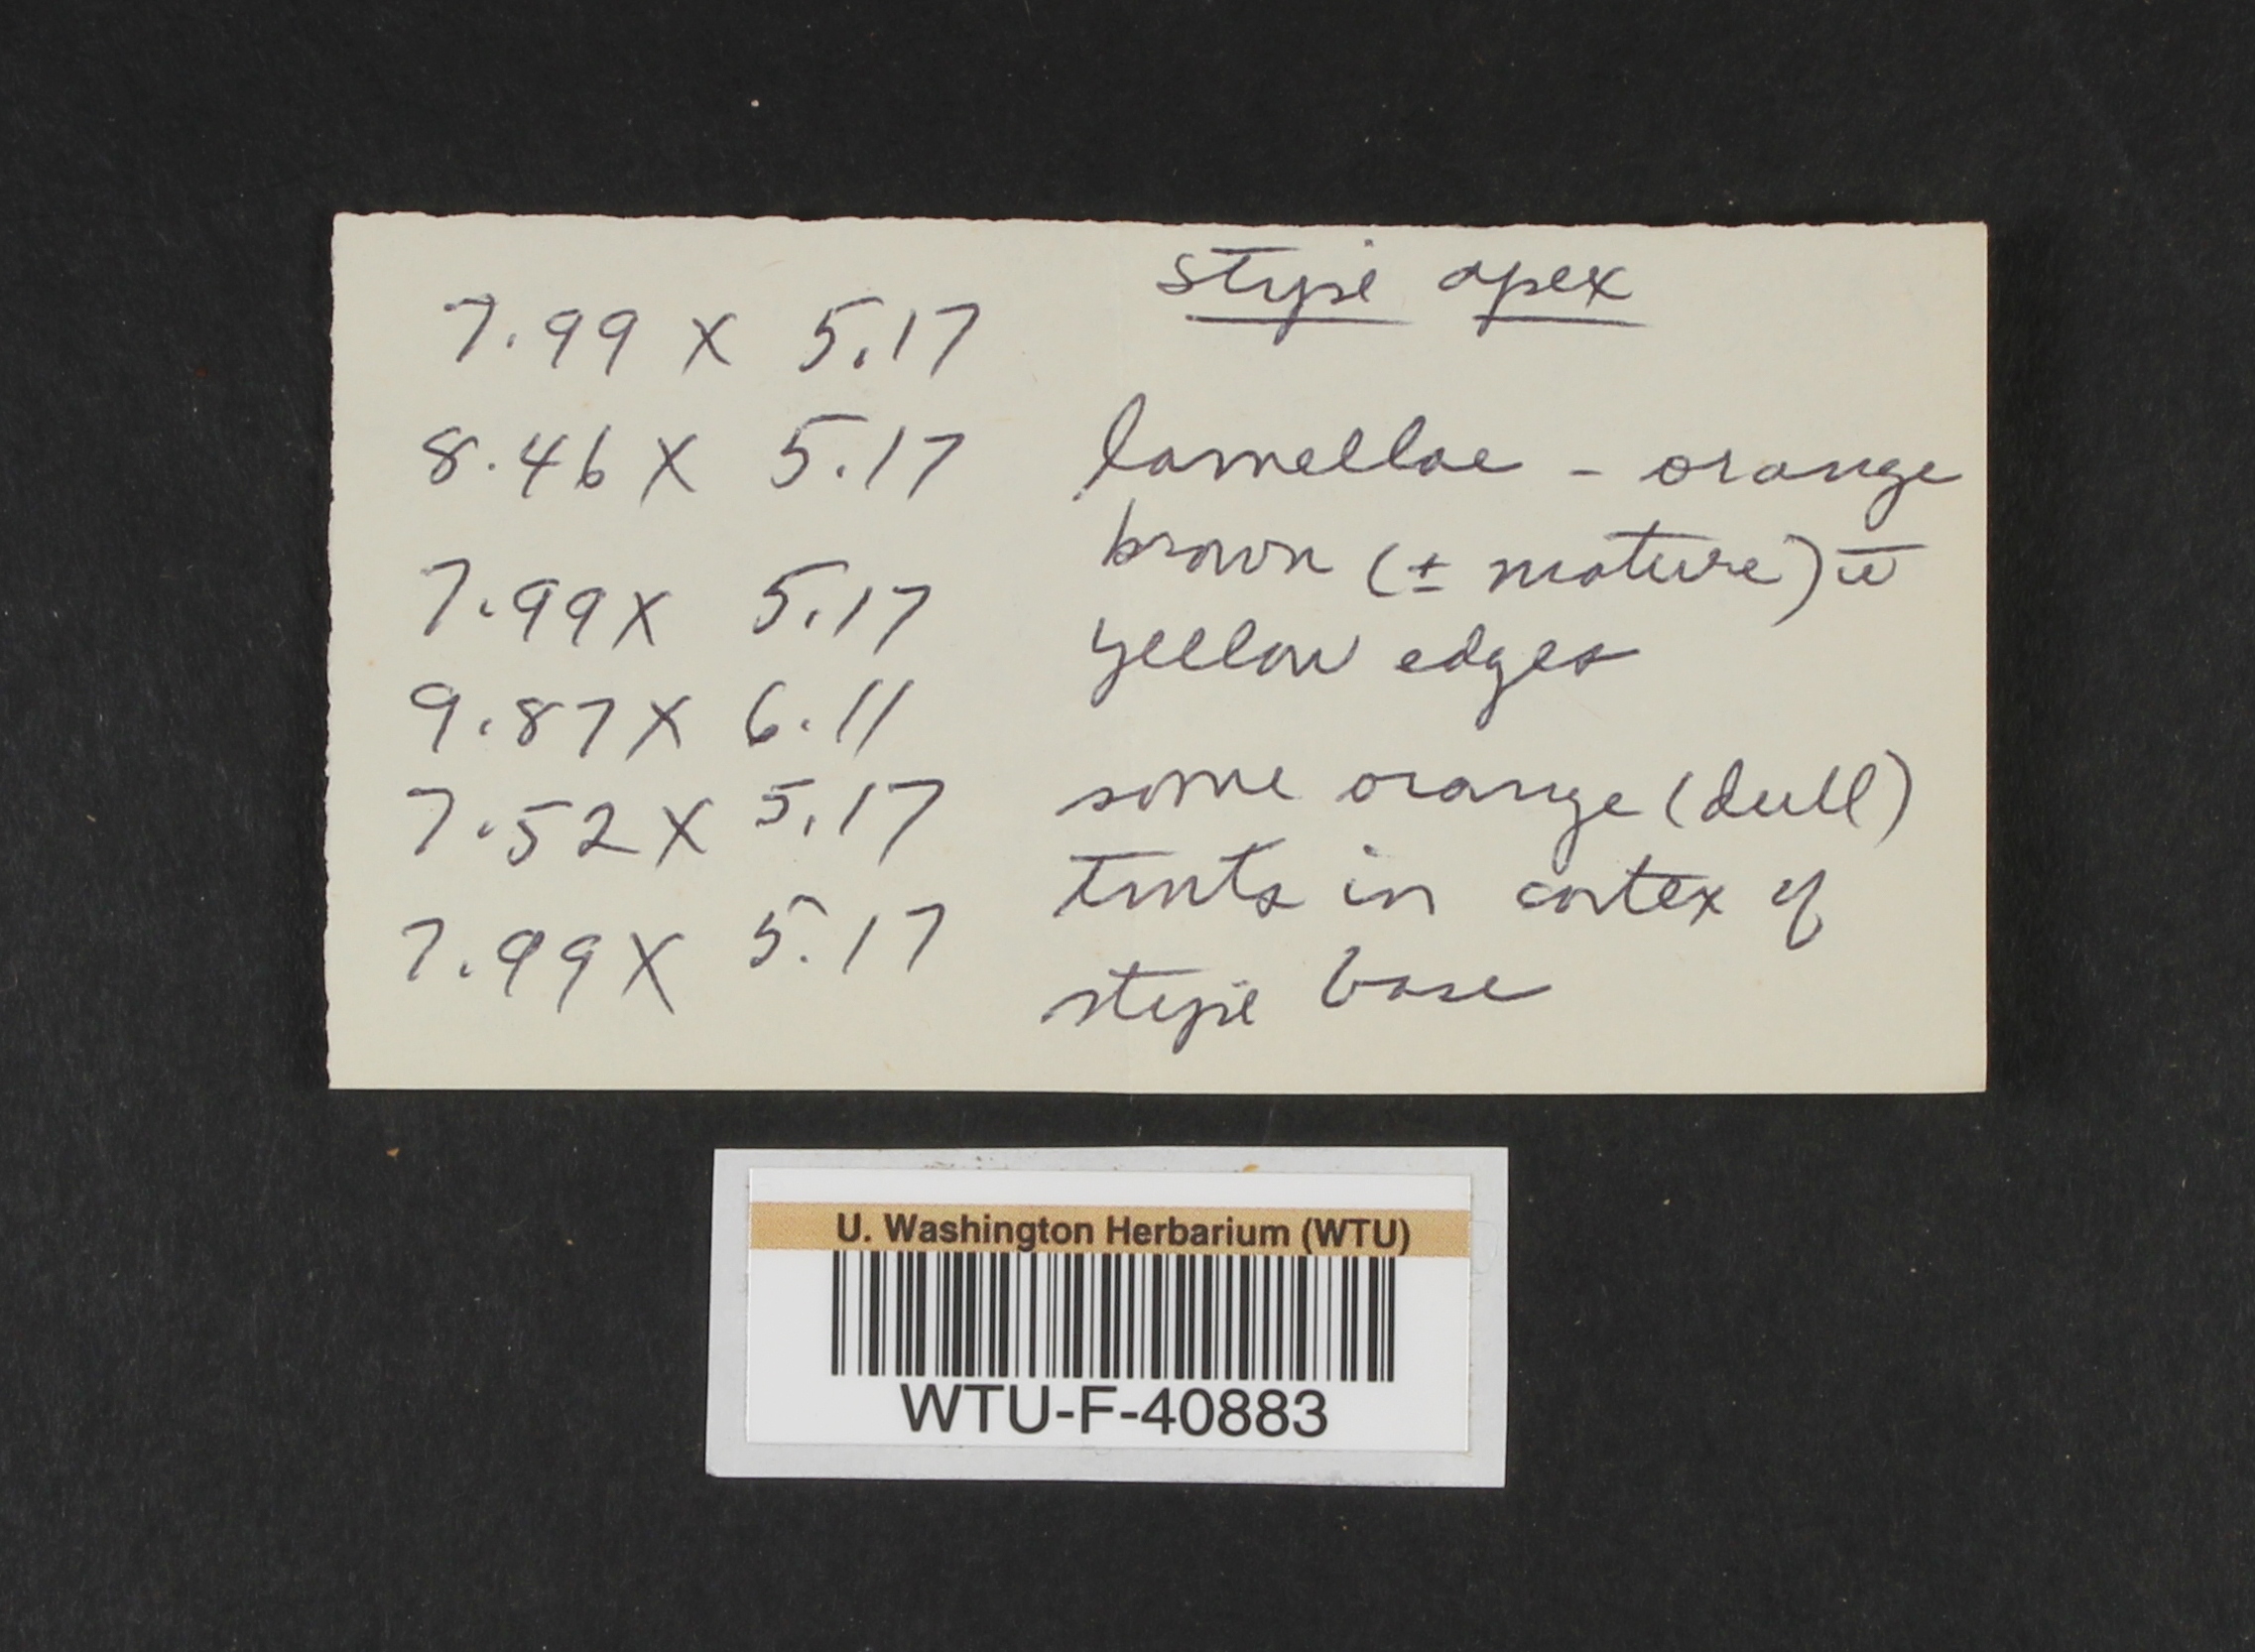 7.99 x 5.17
8.46 x 5.17
7.99 x 5.17
9.87 x 6.11
7.52 x 5.17
7.99 x 5.17
stipe apex
lamellae - orange
brown (± mature) w̄
yellow edges
some orange (dull)
tints in cortex of
stipe base
U. Washington Herbarium (WTU)
WTU-F-40883